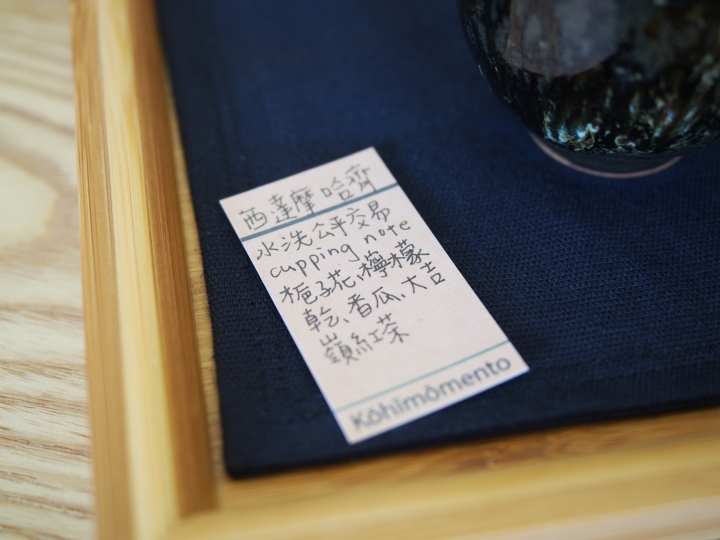 西達摩 哈齊
水洗公平交易
cupping note
梔子花、檸檬
乾、香瓜、大吉
嶺紅茶
Kōhīmōmento